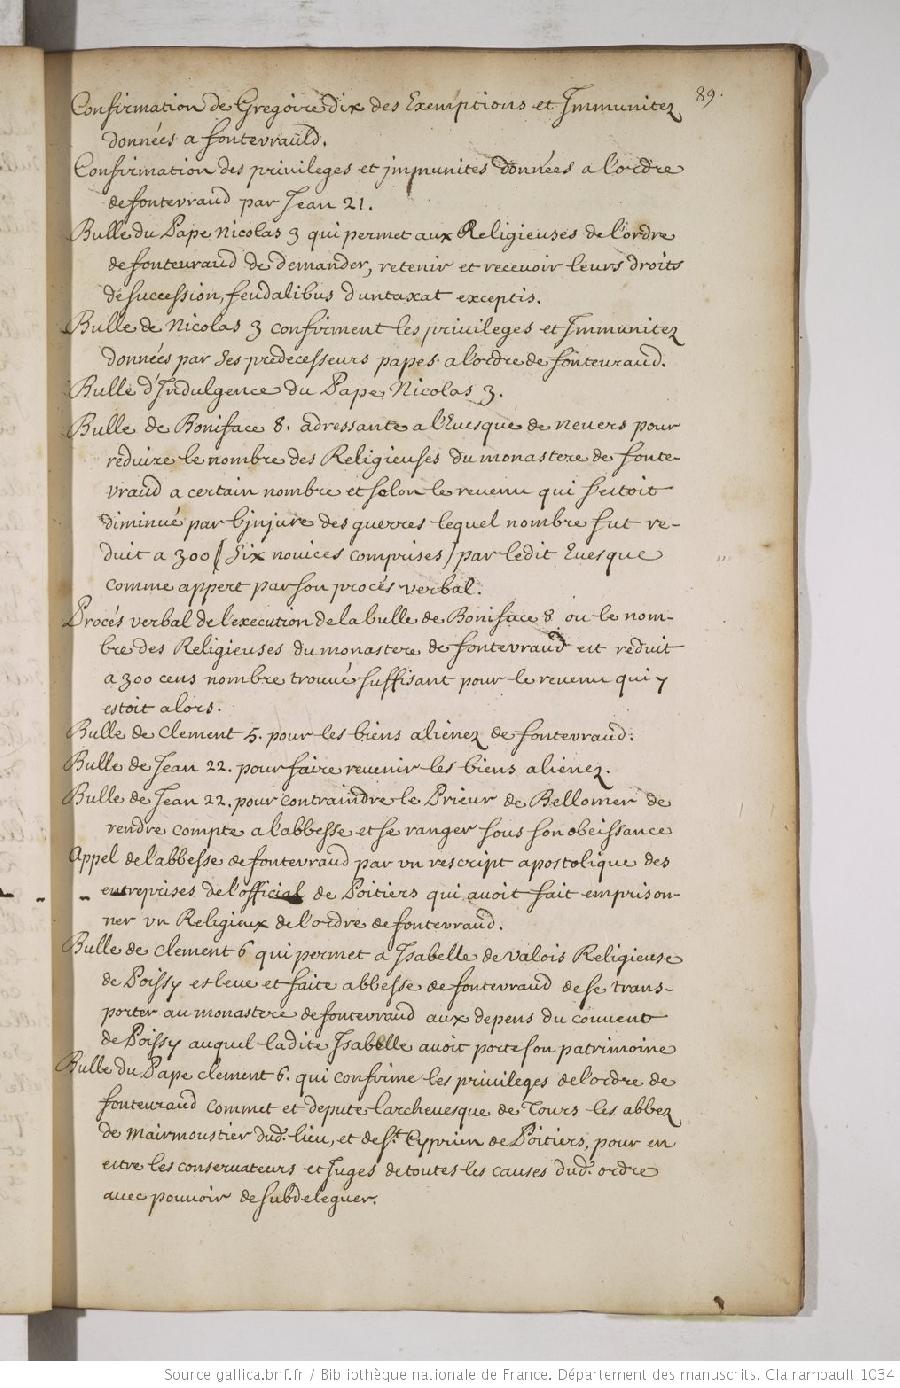 89.
Confirmation de Gregoire dix des Exemptions et Immunitez
données a fontevrauld.
Confirmation des privileges et jmmunités données a l'ordre
de fontevraud par Jean 21.
Bulle du Pape Nicolas 3 qui permet aux Religieuses de l'ordre
de fonteuraud de demander, retenir et recevoir leurs droits
de succession, feudalibus duntaxat exceptis.
Bulle de Nicolas 3 confirment les priuileges et Immunitez
données par ses predecesseurs papes a lordre de fonteuraud.
Bulle d'Indulgence du Pape Nicolas 3.
Bulle de Boniface 8. adressante a l'Euesque de neuers pour
reduire le nombre des Religieuses du monastere de fonte-
vraud a certain nombre et selon le reuenu qui s'estoit
diminué par l'jnjure des guerres lequel nombre fut re-
duit a 300 (six novices comprises) par ledit Euesque
comme appert par son procés verbal.
Procés verbal de l'execution de la bulle de Boniface 8 ou le nom-
bre des Religieuses du monastere de fontevraud est reduit
a 300 cens nombre trouué suffisant pour le reuenu qui y
estoit alors.
Bulle de Clement 5. pour les biens alienez de fontevraud.
Bulle de Jean 22. pour faire reuenir les biens alienez.
Bulle de Jean 22. pour contraindre le Prieur de Bellomer de
rendre compte a l'abbesse et se ranger sous son obeissance
Appel de l'abbesse de fontevraud par vn rescript apostolique des
entreprises de l'official de Poitiers qui avoit fait emprison-
ner vn Religieux de l'ordre de fontevraud.
Bulle de Clement 6 qui permet a Isabelle de valois Religieuse
de Poissy esleue et faite abbesse de fontevraud de se trans-
porter au monastere de fontevraud aux depens du couuent
de Poissy auquel ladite Isabelle avoit porté son patrimoine
Bulle du Pape clement 6. qui confirme les privileges de l'ordre de
fonteuraud commet et depute larcheuesque de Tours les abbez
de Mairmoustier dud. lieu, et de St. Cyprien de Poitiers, pour en
estre les conservateurs et Juges de toutes les causes dud. ordre
avec pouvoir de subdeleguer.
Source gallica.bnf.fr / Bibliothèque nationale de France. Département des manuscrits. Clairambault 1034